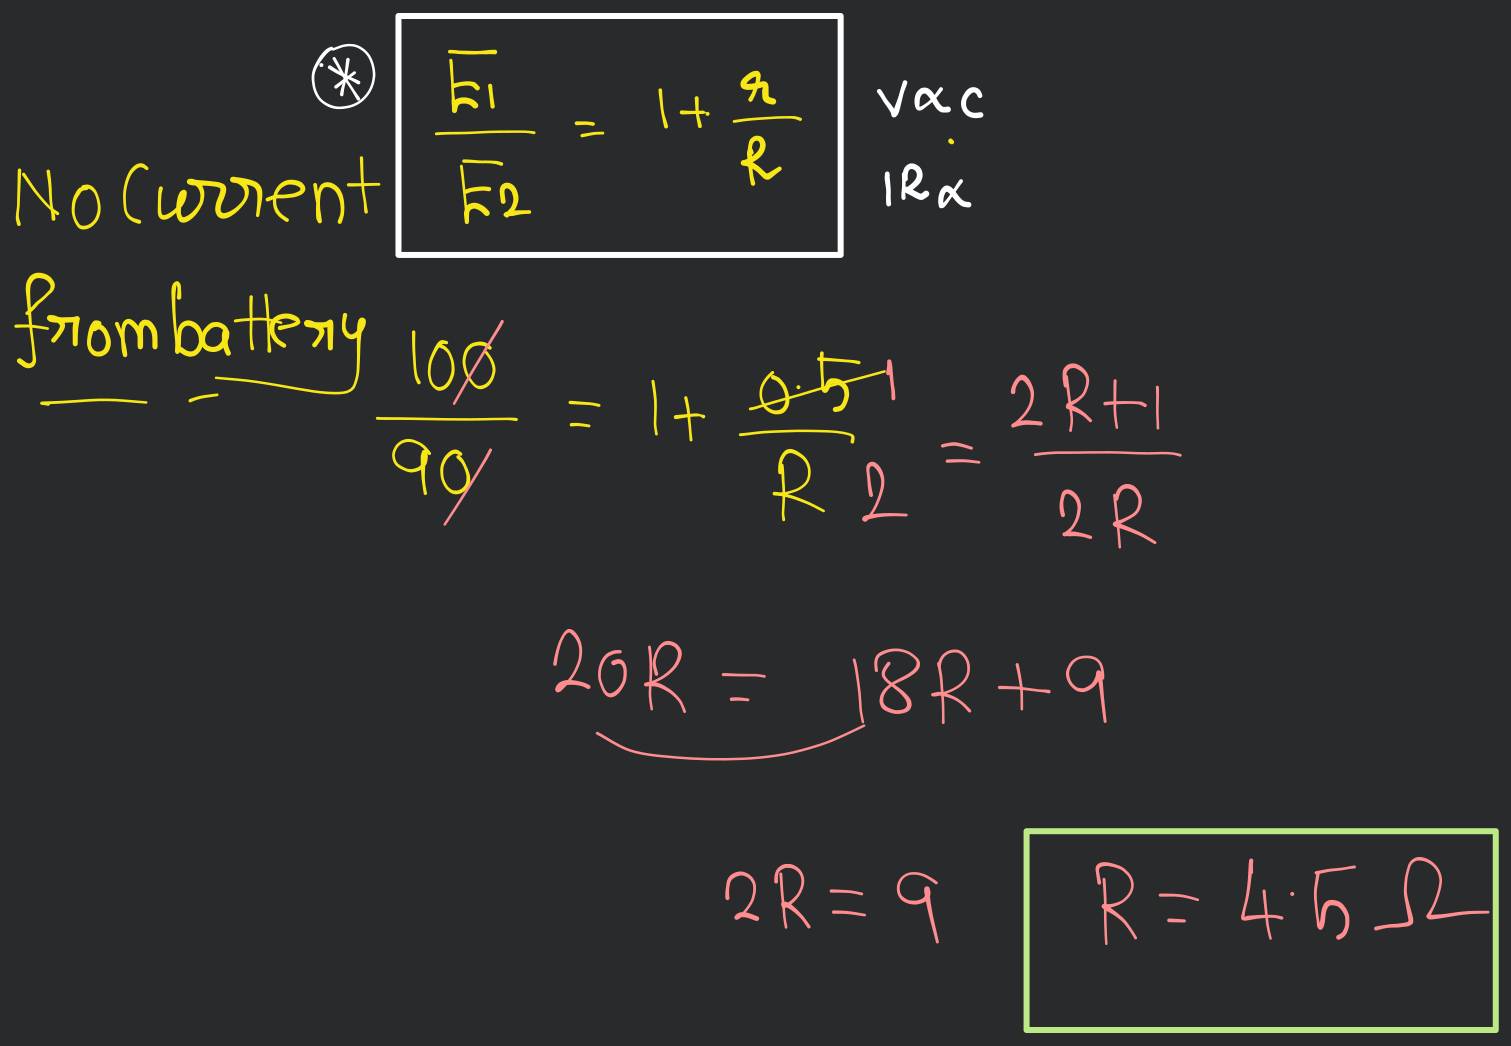 * E1/E2 = 1 + r/R
V ∝ C
IR ∝
No Current
from battery
100/90 = 1 + 0.5 1/R 2 = 2R+1/2R
20R = 18R + 9
2R = 9
R = 4.5 Ω